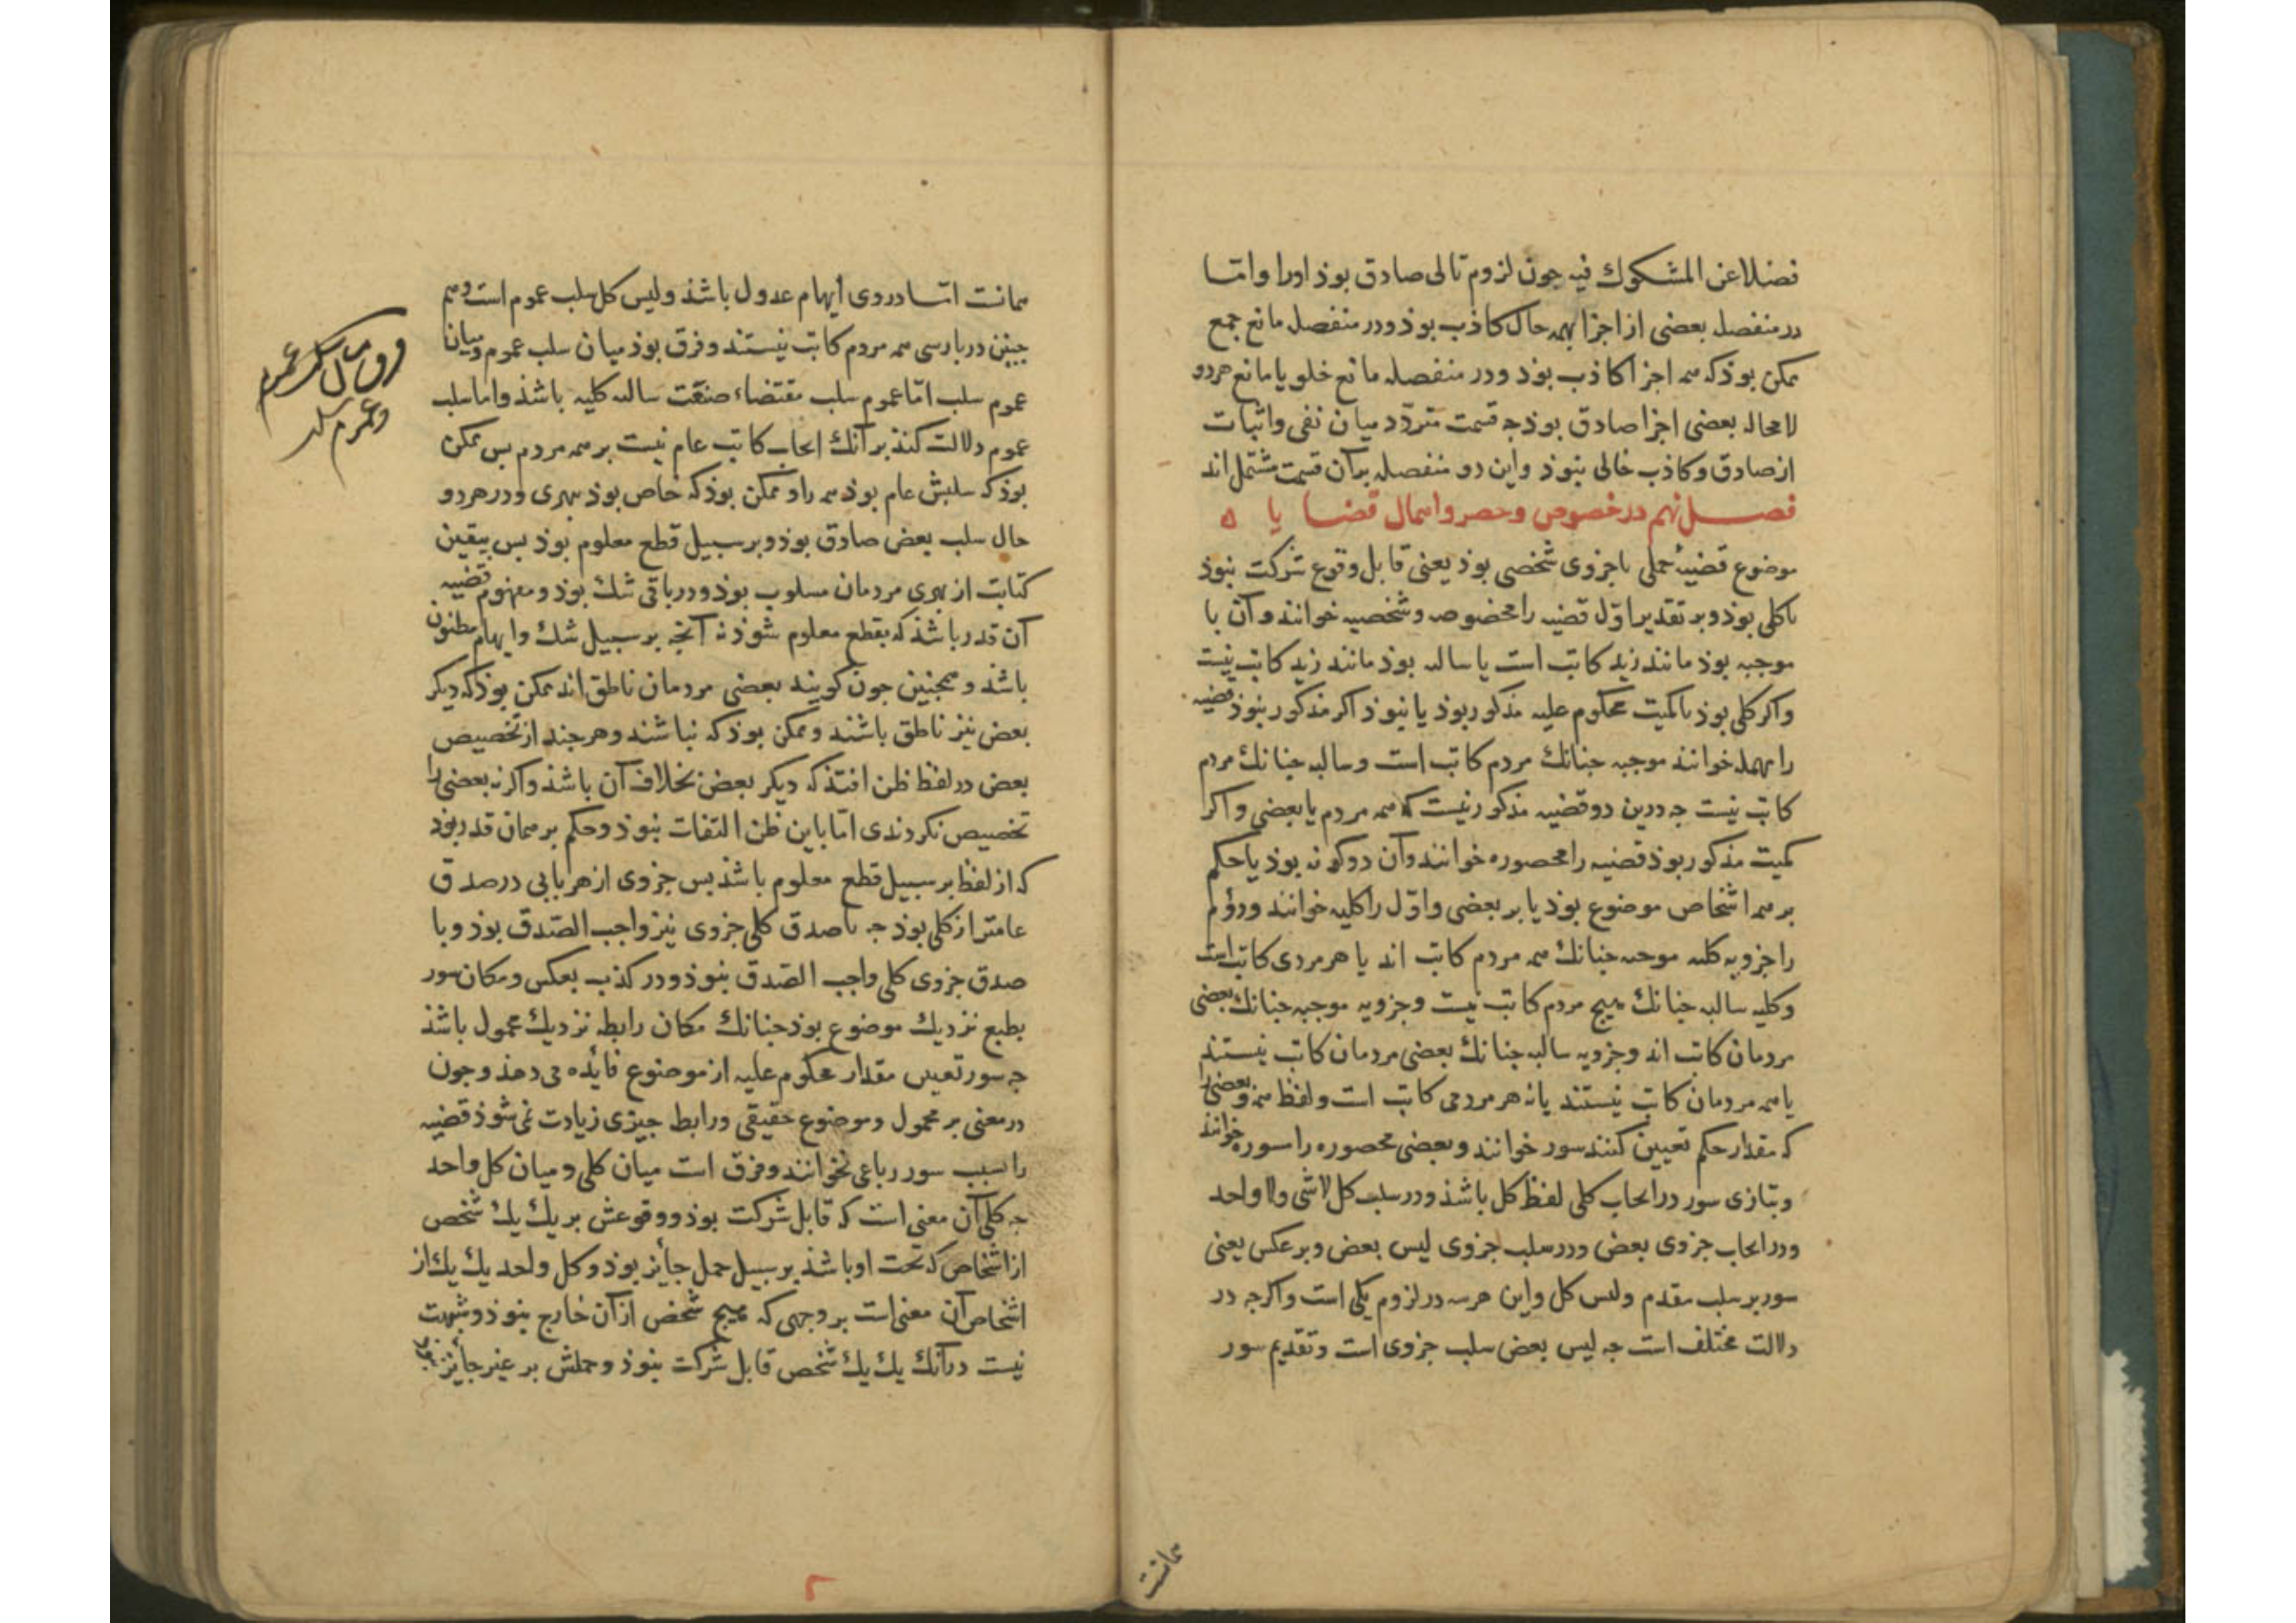 فضلا عن المشکوك فیه جون لزوم تالی صادق بوذ اورا واما
در منفصل بعضی از اجزا بهمه حال کاذب بوذ ودر منفصله مانع جمع
ممکن بوذ که همه اجزا کاذب بوذ ودر منفصله مانع خلو یا مانع هر دو
لا محاله بعضی اجزا صادق بوذ جه قسمت متردّد میان نفی واثبات
از صادق وکاذب خالی نبوذ واین دو منفصله بر آن قسمت مشتمل اند
فصل نهم در خصوص وحصر واهمال قضایا ه
موضوع قضیهٔ حملی یا جزوی شخصی بوذ یعنی قابل وقوع شرکت نبوذ
یا کلی بوذ وبر تقدیر اوّل قضیه را مخصوصه وشخصیه خوانند وآن یا
موجبه بوذ مانند زید کاتب است یا سالبه بوذ مانند زید کاتب نیست
واکر کلی بوذ یا کمیت محکوم علیه مذکور بوذ یا نبوذ اکر مذکور نبوذ قضیه
را مهمله خوانند موجبه جنانك مردم کاتب است وسالبه جنانك مردم
کاتب نیست جه درین دو قضیه مذکور نیست که همه مردم یا بعضی واکر
کمیت مذکور بوذ قضیه را محصوره خوانند وآن دو کونه بوذ یا حکم
بر همه اشخاص موضوع بوذ یا بر بعضی واوّل را کلیه خوانند ودوّم
را جزویه کلیه موجبه جنانك همه مردم کاتب اند یا هر مردی کاتب است
وکلیه سالبه جنانك هیج مردم کاتب نیست وجزویه موجبه جنانك بعضی
مردمان کاتب اند وجزویه سالبه جنانك بعضی مردمان کاتب نیستند
یا همه مردمان کاتب نیستند یا نه هر مردمی کاتب است ولفظ همه وبعضی را
که مقدار حکم تعیین کنند سور خوانند وبعضی محصوره را سوره خوانند
وبتازی سور در ایجاب کلی لفظ کل باشذ ودر سلب کل لا شی ولا واحد
ودر ایجاب جزوی بعض ودر سلب جزوی لیس بعض وبر عکس یعنی
سور بر سلب مقدم ولیس کل واین هر سه در لزوم یکی است واکرجه در
دلالت مختلف است جه لیس بعض سلب جزوی است وتقدیم سور
همانست
همانست اما در وی ایهام عدول باشذ ولیس کل سلب عموم است وهم
جنین در بارسی همه مردم کاتب نیستند وفرق بوذ میان سلب عموم ومیان
عموم سلب امّا عموم سلب مقتضاء صنعت سالبه کلیه باشذ واما سلب
عموم دلالت کنذ بر آنك ایجاب کاتب عام نیست بر همه مردم بس ممکن
بوذ که سلبش عام بوذ همه را وممکن بوذ که خاص بوذ ببهری ودر هر دو
حال سلب بعض صادق بوذ وبر سبیل قطع معلوم بوذ بس بیقین
کتابت از بهری مردمان مسلوب بوذ ودر باقی شك بوذ ومفهوم قضیه
آن قدر باشذ که بقطع معلوم شوذ نه آنجه بر سبیل شك وایهام مظنون
باشذ وهمجنین جون کویند بعضی مردمان ناطق اند ممکن بوذ که دیکر
بعض نیز ناطق باشند وممکن بوذ که نباشند وهر جند از تخصیص
بعض در لفظ ظن افتذ که دیکر بعض بخلاف آن باشذ واکر نه بعضی را
تخصیص نکردندی امّا باین ظن التفات نبوذ وحکم بر همان قدر بوذ
که از لفظ بر سبیل قطع معلوم باشذ بس جزوی از هر بابی در صدق
عامتر از کلی بوذ جه با صدق کلی جزوی نیز واجب الصّدق بوذ وبا
صدق جزوی کلی واجب الصّدق نبوذ ودر کذب بعکس ومکان سور
بطبع نزدیك موضوع بوذ جنانك مکان رابطه نزدیك محمول باشذ
جه سور تعیین مقدار محکوم علیه از موضوع فائده می دهذ وجون
در معنی بر محمول وموضوع حقیقی ورابط جیزی زیادت نمی شوذ قضیه
را بسبب سور رباعی نخوانند وفرق است میان کلی ومیان کل واحد
جه کلی آن معنی است که قابل شرکت بوذ ووقوعش بر یك یك شخص
از اشخاص که تحت او باشذ بر سبیل حمل جائز بوذ وکل واحد یك یك از
اشخاص آن معنی است بر وجهی که هیج شخص از آن خارج نبوذ وشبهت
نیست در آنك یك یك شخص قابل شرکت نبوذ وحملش بر غیر جائز نبوذ
فرق میان سلب عموم
وعموم سلب
۲